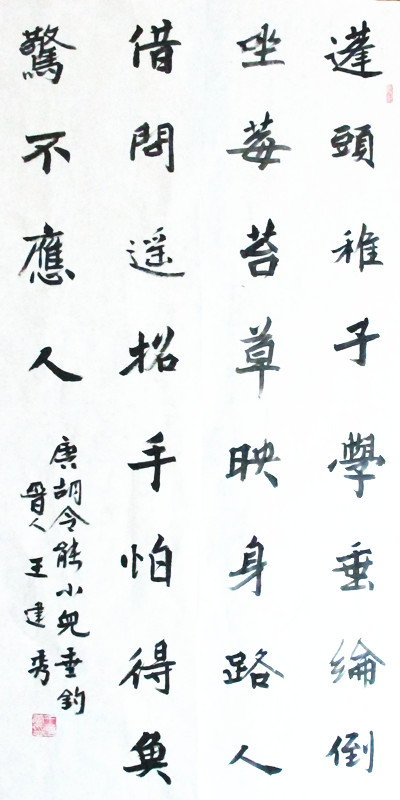 蓬頭稚子學垂綸倒
坐莓苔草映身路人
借問遥招手怕得魚
驚不應人
唐胡令能小兒垂釣
晉人王建秀